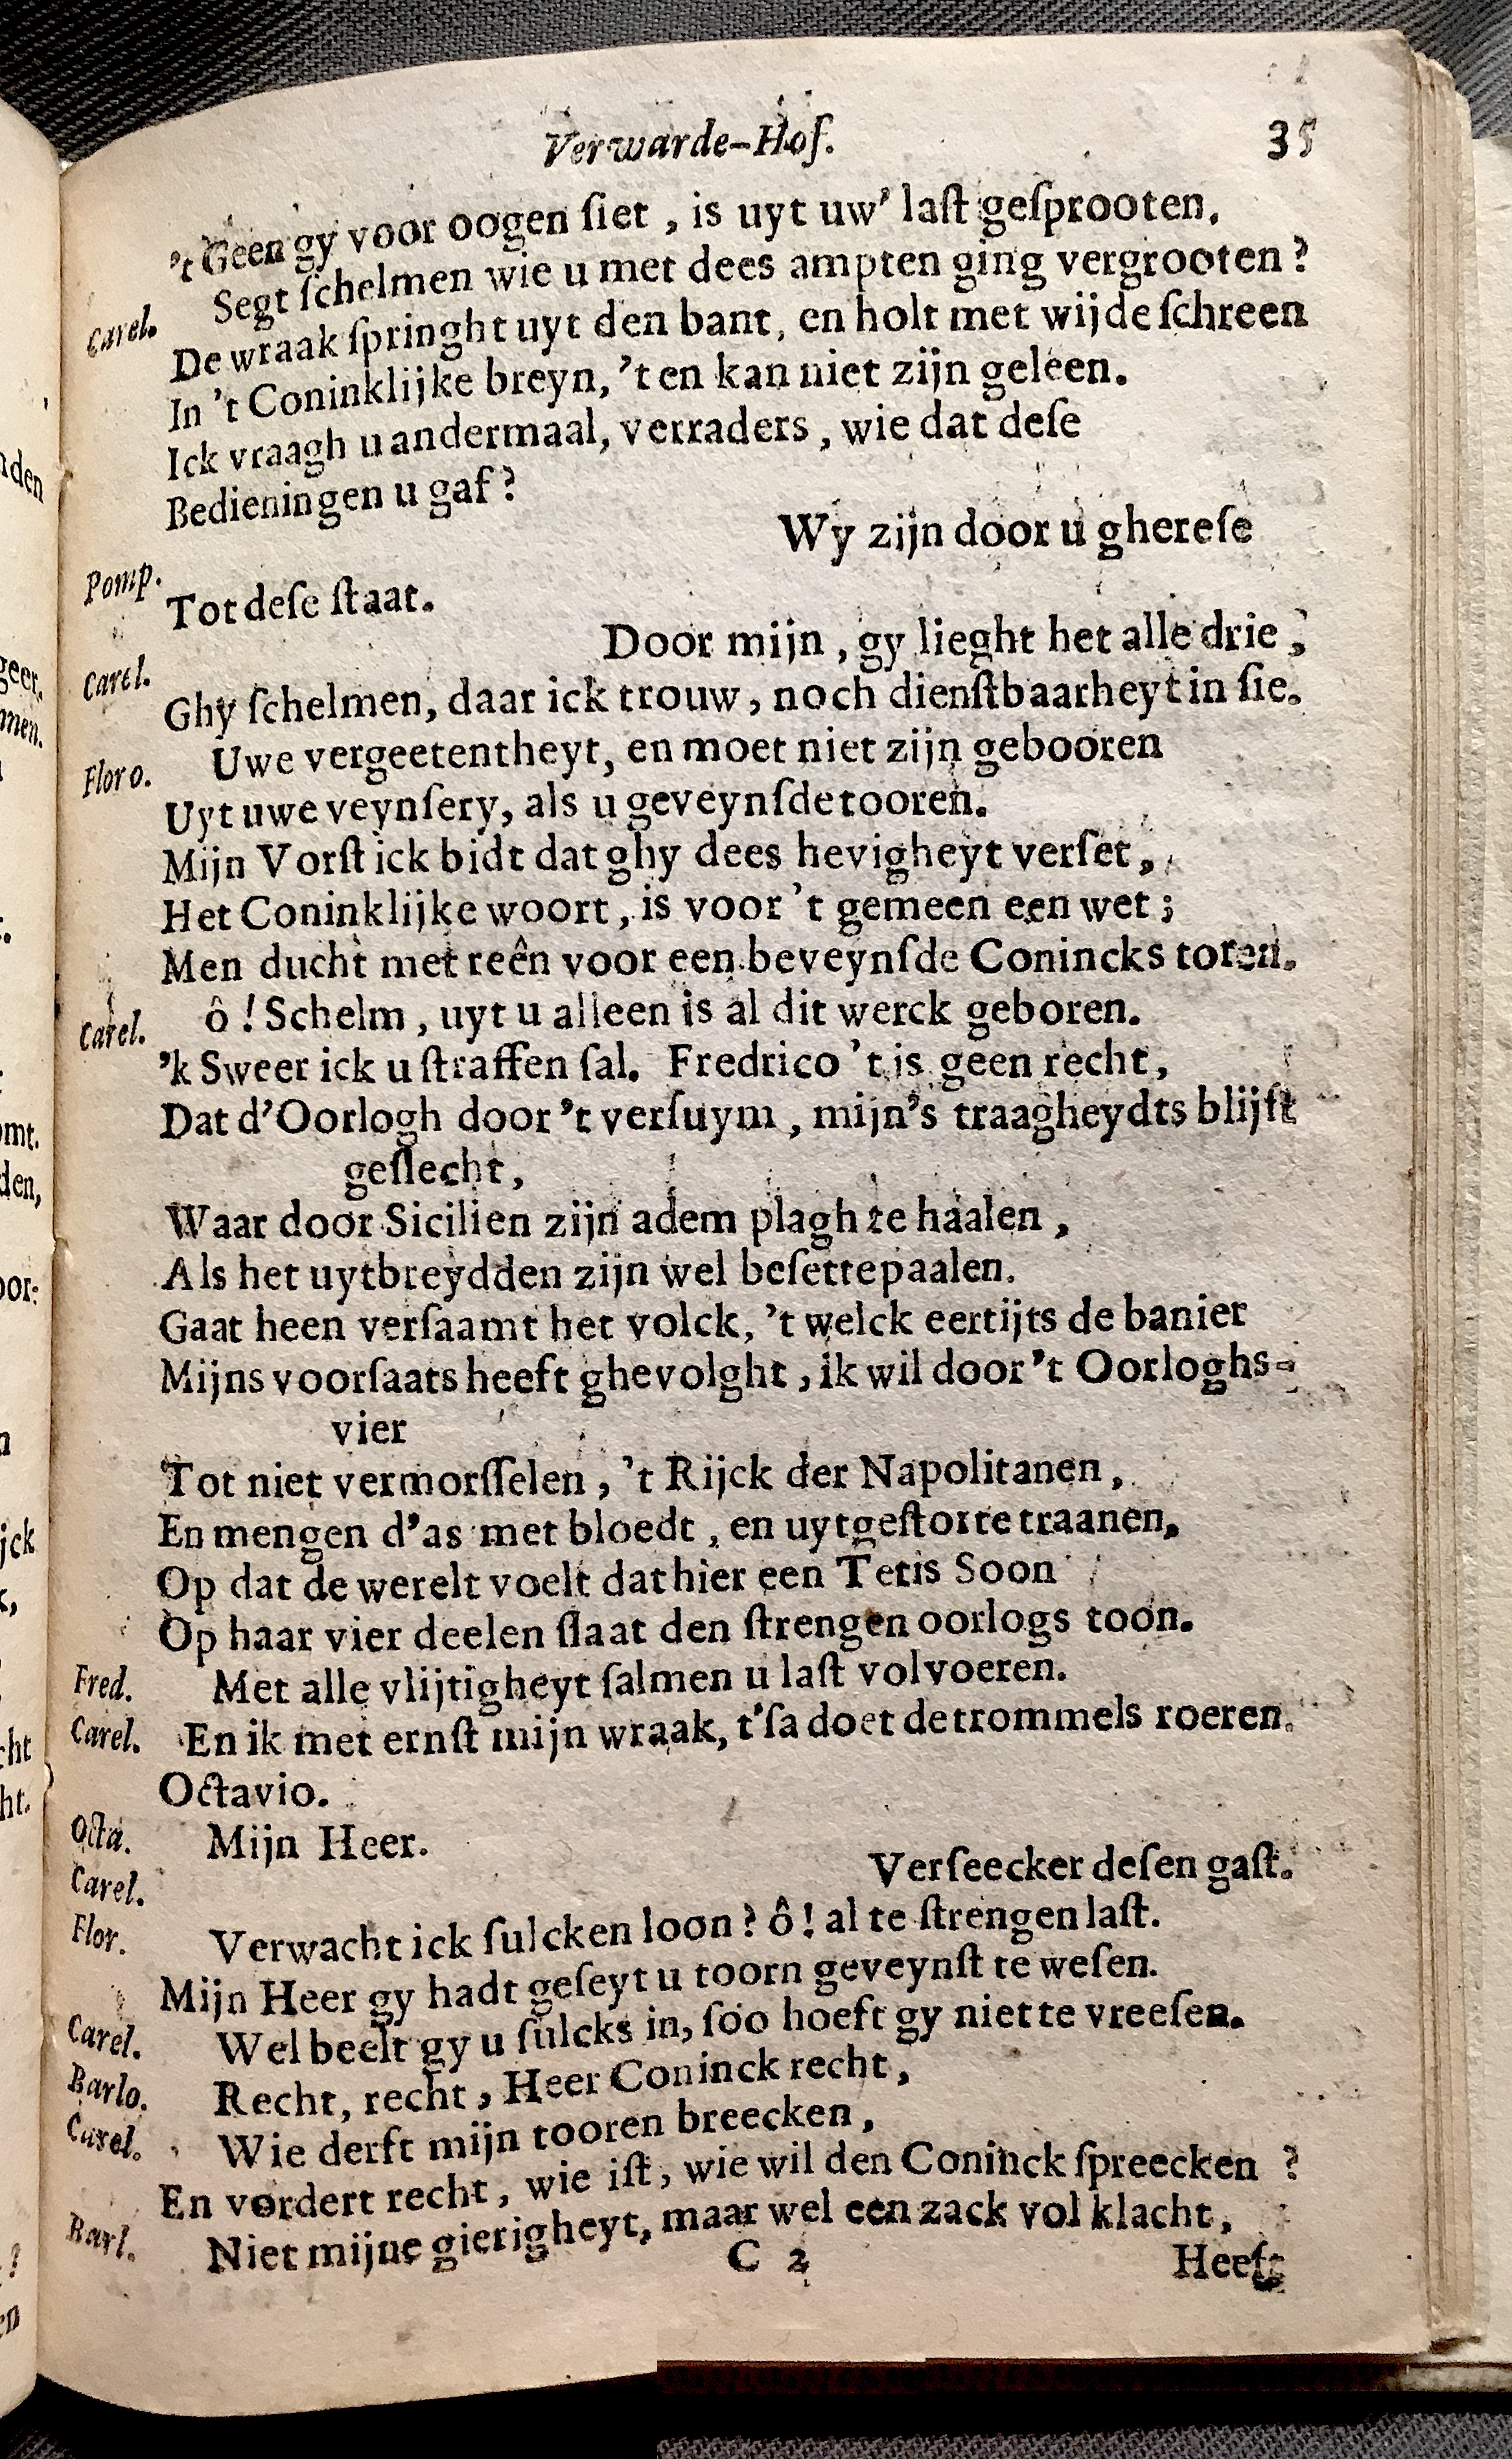 Verwarde-Hof. 35
't Geen gy voor oogen ſiet, is uyt uw' laſt geſprooten.
Carel. Segt ſchelmen wie u met dees ampten ging vergrooten?
De wraak ſpringht uyt den bant, en holt met wijde ſchreen
In 't Coninklijke breyn, 't en kan niet zijn geleen.
Ick vraagh u andermaal, verraders, wie dat deſe
Bedieningen u gaf?
Pomp. Wy zijn door u ghereſe
Tot deſe ſtaat.
Carel. Door mijn, gy lieght het alle drie,
Ghy ſchelmen, daar ick trouw, noch dienſtbaarheyt in ſie.
Floro. Uwe vergeetentheyt, en moet niet zijn gebooren
Uyt uwe veynſery, als u geveynſde tooren.
Mijn Vorſt ick bidt dat ghy dees hevigheyt verſet,
Het Coninklijke woort, is voor 't gemeen een wet;
Men ducht met reên voor een beveynſde Conincks toren.
Carel. ô! Schelm, uyt u alleen is al dit werck geboren.
'k Sweer ick u ſtraffen ſal. Fredrico 't is geen recht,
Dat d'Oorlogh door 't verſuym, mijn's traagheydts blijft
geſlecht,
Waar door Sicilien zijn adem plagh te haalen,
Als het uytbreydden zijn wel beſette paalen.
Gaat heen verſaamt het volck, 't welck eertijts de banier
Mijns voorſaats heeft ghevolght, ik wil door 't Oorloghs-
vier
Tot niet vermorſſelen, 't Rijck der Napolitanen,
En mengen d'as met bloedt, en uytgeſtorte traanen,
Op dat de werelt voelt dat hier een Tetis Soon
Op haar vier deelen ſlaat den ſtrengen oorlogs toon.
Fred. Met alle vlijtigheyt ſalmen u laſt volvoeren.
Carel. En ik met ernſt mijn wraak, t'ſa doet de trommels roeren.
Octavio.
Octa. Mijn Heer.
Carel. Verſeecker deſen gaſt.
Flor. Verwacht ick ſulcken loon? ô! al te ſtrengen laſt.
Mijn Heer gy hadt geſeyt u toorn geveynſt te weſen.
Carel. Wel beelt gy u ſulcks in, ſoo hoeft gy niet te vreeſen.
Barlo. Recht, recht, Heer Coninck recht,
Carel. Wie derft mijn tooren breecken,
En vordert recht, wie iſt, wie wil den Coninck ſpreecken?
Barl. Niet mijne gierigheyt, maar wel een zack vol klacht,
C 2 Heeft